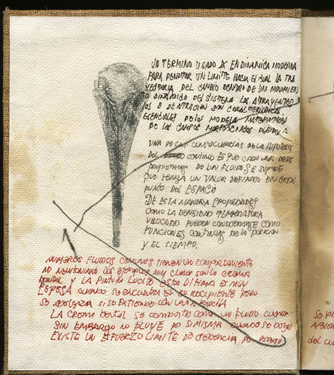 UN TERMINO USADO EN DINAMICA MODERNA
PARA DENOTAR UN LIMITE HACIA EL CUAL LA TRA
YECTORIA DEL CAMBIO DENTRO DE UN MOVIMIEN
TO DINAMICO DEL SISTEMA
O DE ATRACCION SON CARACTERISTICAS
ESENCIALES DE LA MODELA MATEMATICA
DE LOS CAMPOS MORFOGENICOS DEBIDO A
UNA DE LAS CONSECUENCIAS DE LA HIPOTESIS
DEL CONTINUO ES QUE CADA UNA DE LAS
PROPIEDADES DE UN FLUIDO SE SUPONE
QUE TENGA UN VALOR DEFINIDO EN CADA
PUNTO DEL ESPACIO
DE ESTA MANERA PROPIEDADES
COMO LA DENSIDAD TEMPERATURA
VELOCIDAD PUEDEN CONSIDERARSE COMO
FUNCIONES CONTINUAS DE LA POSICION
Y EL TIEMPO.
MUCHOS FLUIDOS COMUNES TIENEN UN COMPORTAMIENTO
NO NEWTONIANO DOS EJEMPLOS MUY CLAROS SON LA CREMA
DENTAL Y LA PINTURA LUCITE ESTA ULTIMA ES MUY
ESPESA CUANDO SE ENCUENTRA EN SU RECIPIENTE PERO
SE ADELGAZA SI SE EXTIENDE CON UNA BROCHA
LA CREMA DENTAL SE COMPORTA COMO UN FLUIDO CUANDO
SIN EMBARGO NO FLUYE POR SI MISMA CUANDO SE DEJA
EXISTE UN ESFUERZO LIMITE DE CEDENCIA